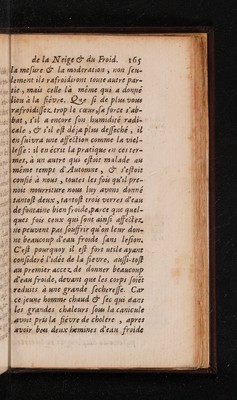 de la Neige & du Froid. 165
la mesure & la moderation, non seu-
lement ils rafroidiront toute autre par-
tie, mais celle là même qui a donné
lieu à la fiévre. Que si de plus vous
rafroidissez trop le cœur, sa force s'ab-
bat, s'il a encore son humidité radi-
cale, & s'il est déja plus desseché, il
en suivra une affection comme la viel-
lesse: il en écrit la pratique en ces ter-
mes, à un autre qui estoit malade au
même temps d'Automne, & s'estoit
confié à nous, toutes les fois qu'il pre-
noit nourriture nous luy avons donné
tantost deux, tantost trois verres d'eau
de fontaine bien froide, parce que quel-
ques fois ceux qui sont ainsi affectez
ne peuvent pas souffrir qu'on leur don-
ne beaucoup d'eau froide sans lesion.
C'est pourquoy il est fort utile ayant
consideré l'idée de la fievre, aussi-tost
au premier accez, de donner beaucoup
d'eau froide, devant que les corps soiët
reduits à une grande secheresse. Car
ce jeune homme chaud & sec qui dans
les grandes chaleurs sous la canicule
avoit pris la fiévre de cholere, apres
avoir bou deux hemines d'eau froide